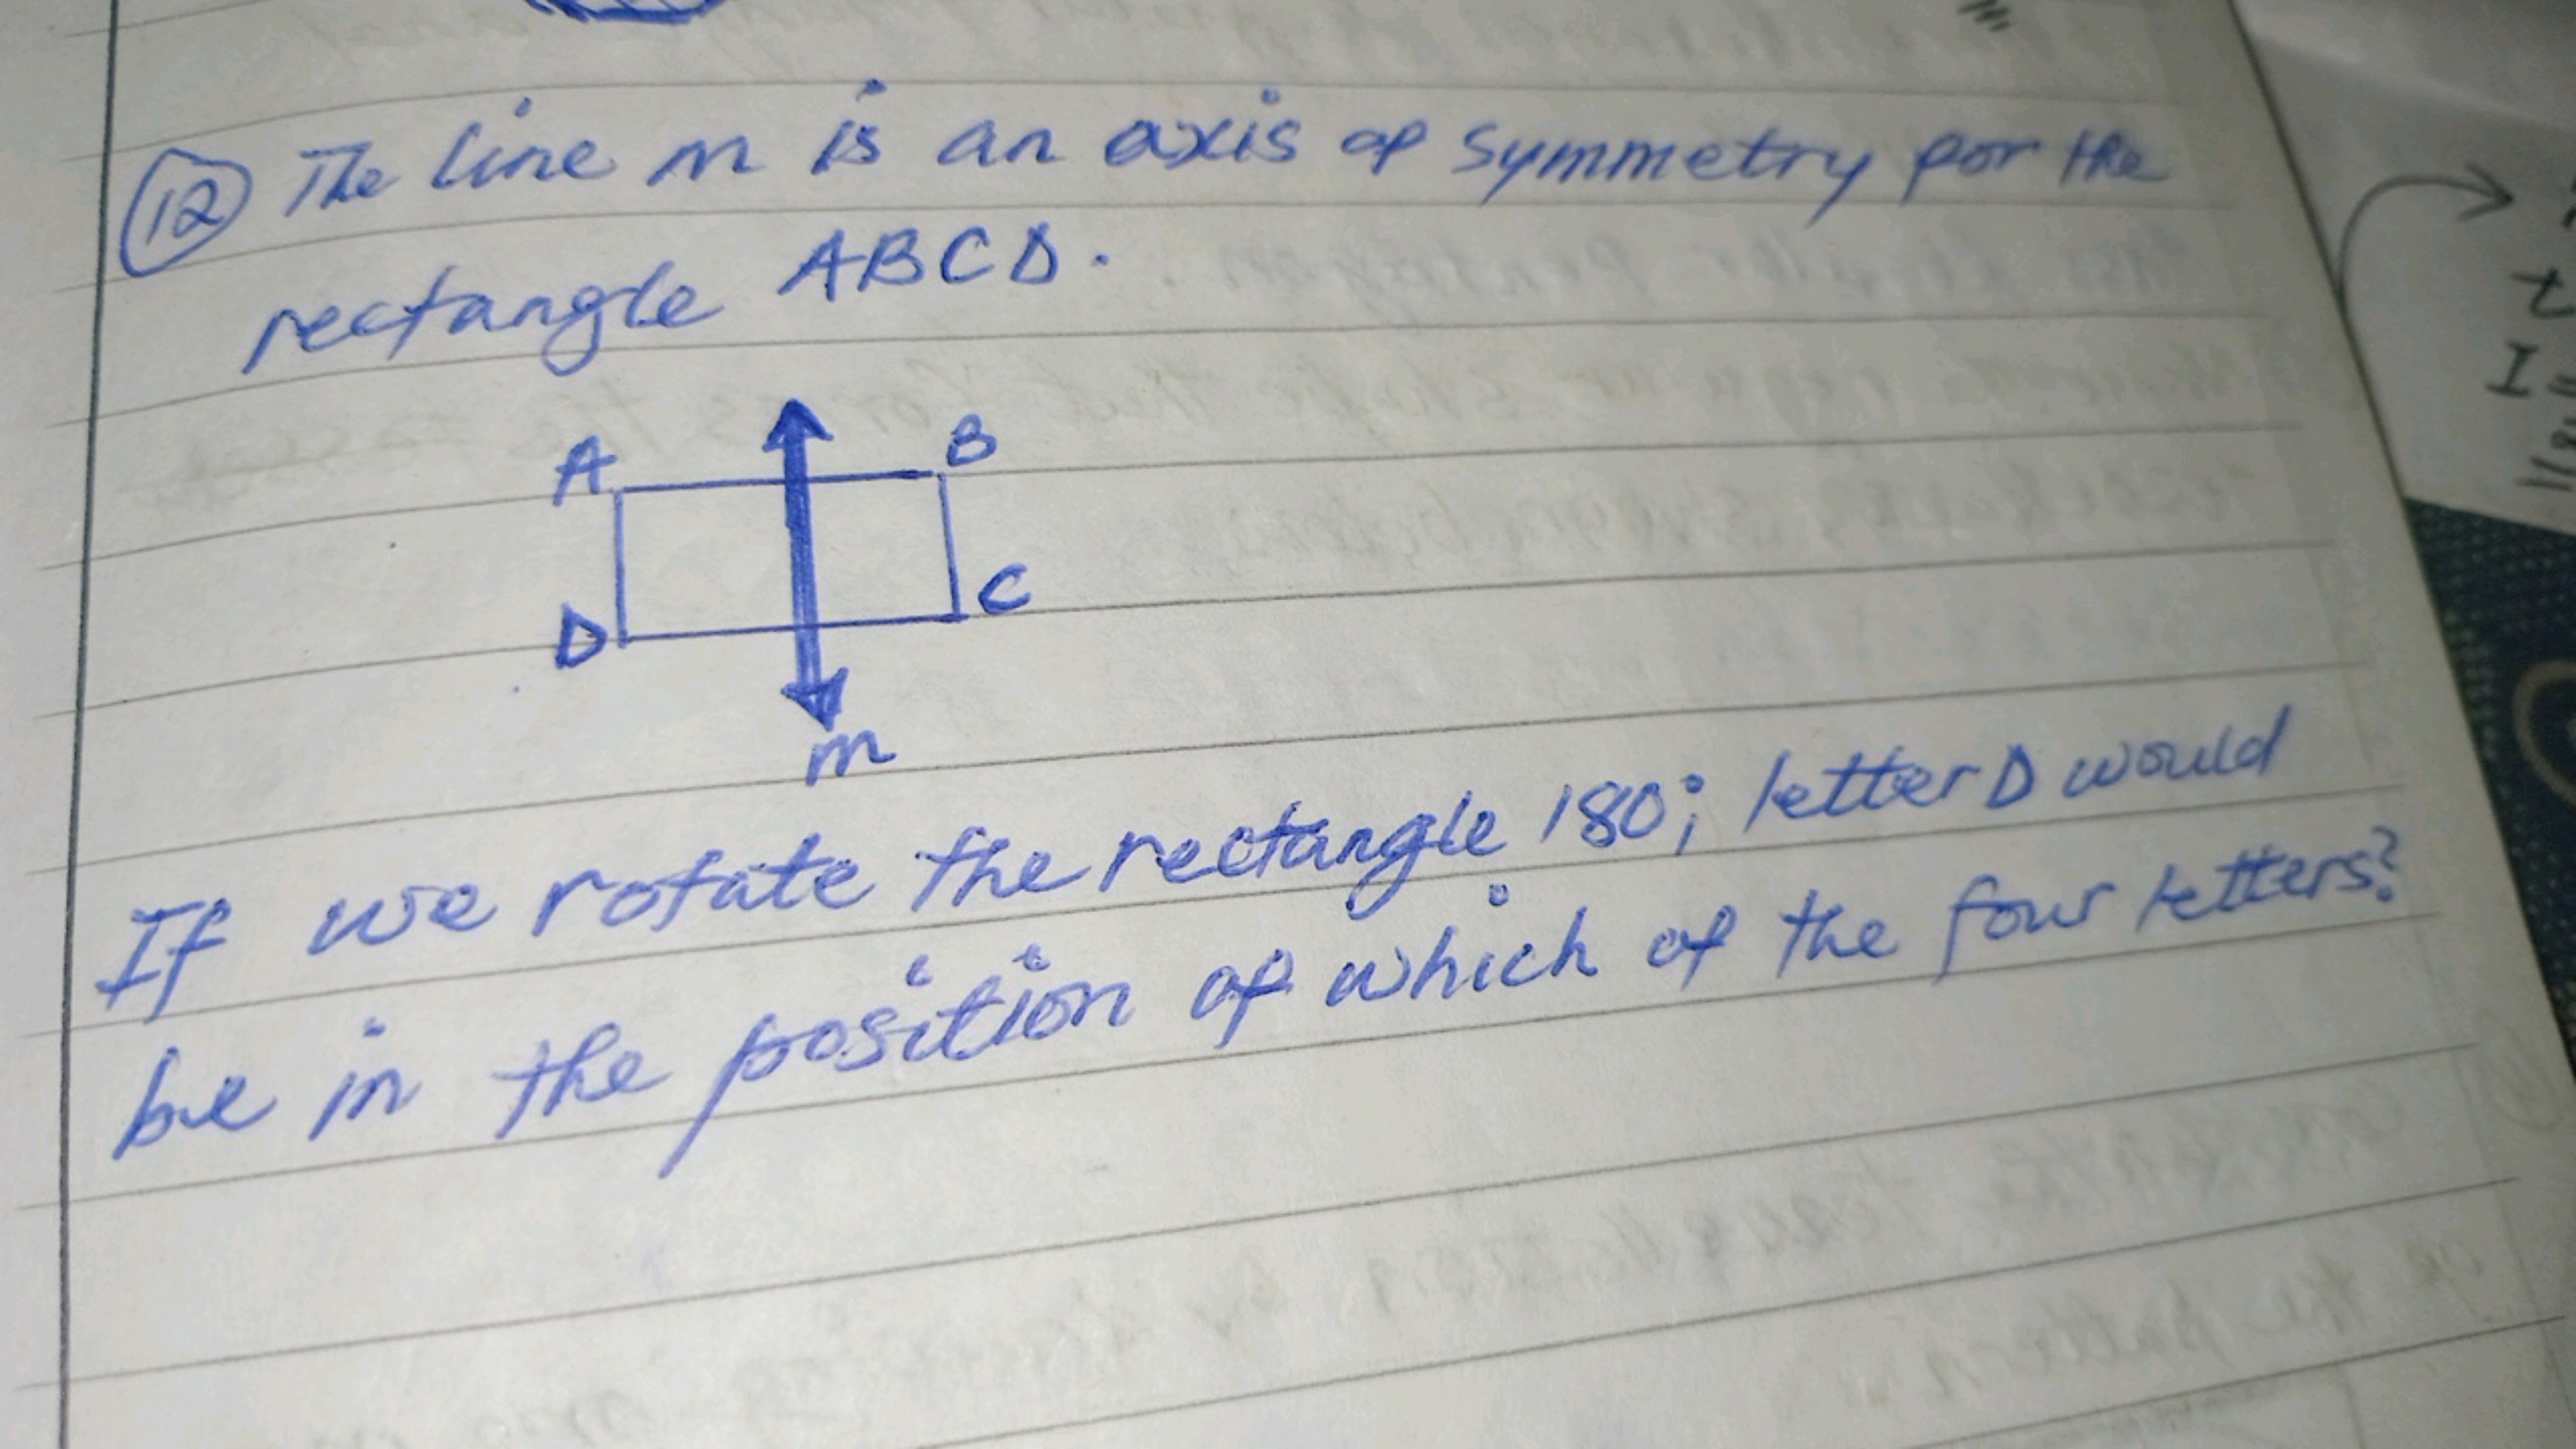 12 The line m is an axis of symmetry for the
rectangle ABCD.
A B
D C
m
If we rotate the rectangle 180°, letter D would
be in the position of which of the four letters?
t
I =